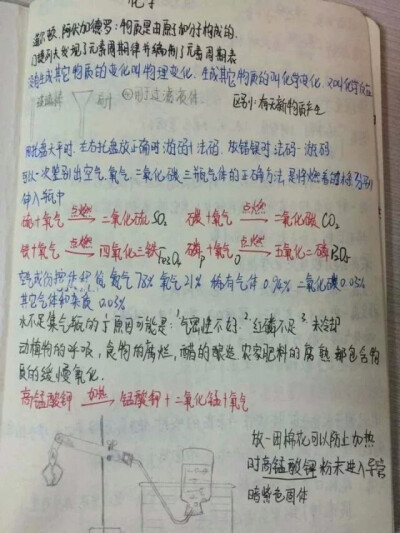 化学
道尔顿、阿伏加德罗:物质是由原子和分子构成的。
门捷列夫发现了元素周期律并编制了元素周期表
没有生成其它物质的变化叫物理变化. 生成其它物质的叫化学变化. 又叫化学反应
玻璃棒 漏斗 ①用于过滤液体. 区别:有无新物质产生
用托盘天平时. 左右托盘放正确时 游码+法码. 放错错时 法码-游码
可以一次鉴别出空气. 氧气. 二氧化碳 三瓶气体的正确方法, 是将燃着的木条分别
伸入瓶中
硫+氧气 点燃 二氧化硫SO₂ 碳+氧气 点燃 二氧化碳CO₂
铁+氧气 点燃 四氧化三铁Fe₃O₄ 磷P+氧气O 点燃 五氧化二磷P₂O₅
空气成份按体积 氮气78% 氧气21% 稀有气体0.94% 二氧化碳0.03%
其它气体和杂质 0.03%
水不足集气瓶的 原因可能是: 1气密性不好 2红磷不足 3未冷却
动植物的呼吸, 食物的腐烂, 醋的酿造 农家肥料的腐熟 都包含物
质的缓慢氧化.
高锰酸钾 加热 锰酸钾+二氧化锰+氧气
放一团棉花可以防止加热
时高锰酸钾粉末进入导管
暗紫色固体